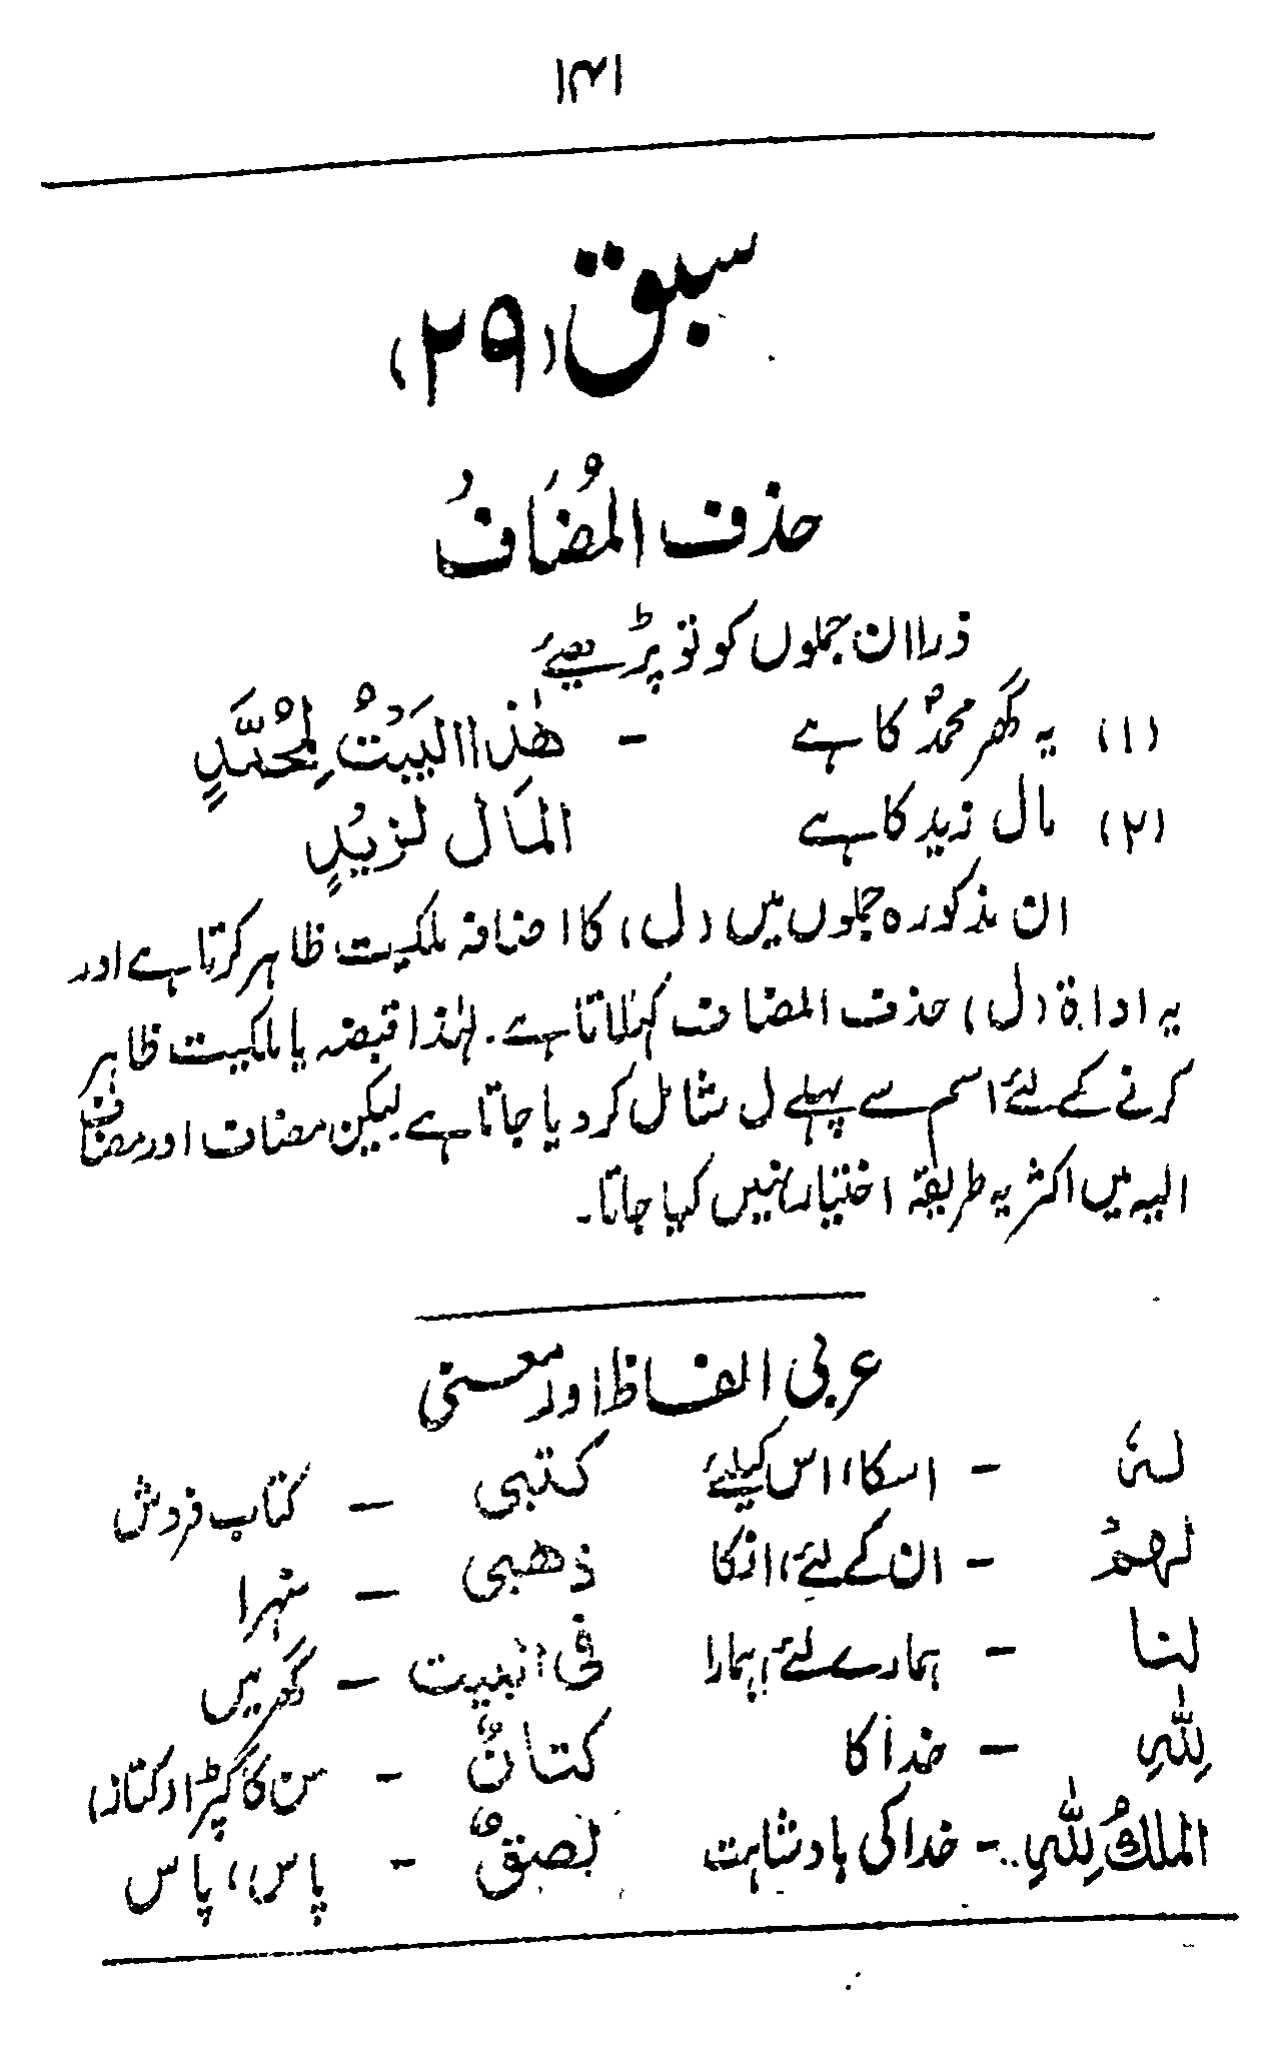 ۱۳۱
سبق (۲۹)
حذف المُضَافُ
ذرا ان جملوں کو تو پڑھیئے
(۱) یہ گھر محمدؐ کا ہے – هٰذا البَيْتُ لِمُحمَّدٍ
(۲) مال زید کا ہے المَال لزيدٍ
ان مذکورہ جملوں میں (ل) کا اضافہ ملکیت ظاہر کرتا ہے اور
یہ اداۃ (ل) حذف المضاف کہلاتا ہے۔ لہٰذا قبضہ یا ملکیت ظاہر
کرنے کے لئے اسم سے پہلے ل شامل کر دیا جاتا ہے لیکن مضاف اور مضاف
الیہ میں اکثر یہ طریقہ اختیار نہیں کیا جاتا۔
عربی الفاظ اور معنی
لهٗ – اسکا، اس کیلئے کتبی – کتاب فروش
لهمُ – ان کے لئے، انکا ذهبی – سنہرا
لنا – ہمارے لئے، ہمارا فی البیت – گھر میں
لِلّٰهِ – خدا کا کتانٌ – سن کا کپڑا (کتان)
الملكُ لِلّٰهِ – خدا کی بادشاہت لصقٌ – پاس، پاس